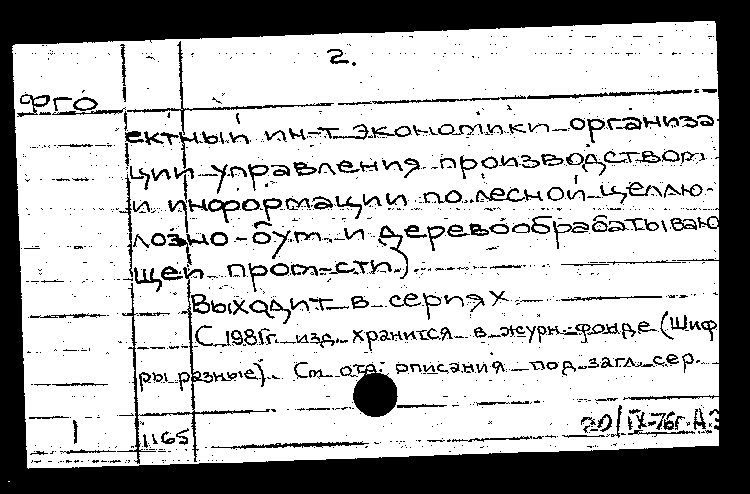 2.
ФГО
ектный ин-т экономики организа-
ции управления производством
и информации по лесной целлю-
лозно-бум. и деревообрабатываю
щей пром-сти)
Выходит в сериях
С 1981г. изд. хранится в журн.-фонде (Шиф
ры разные). См отд. описания под загл. сер.
1 1165 20/IX-76г. А.З